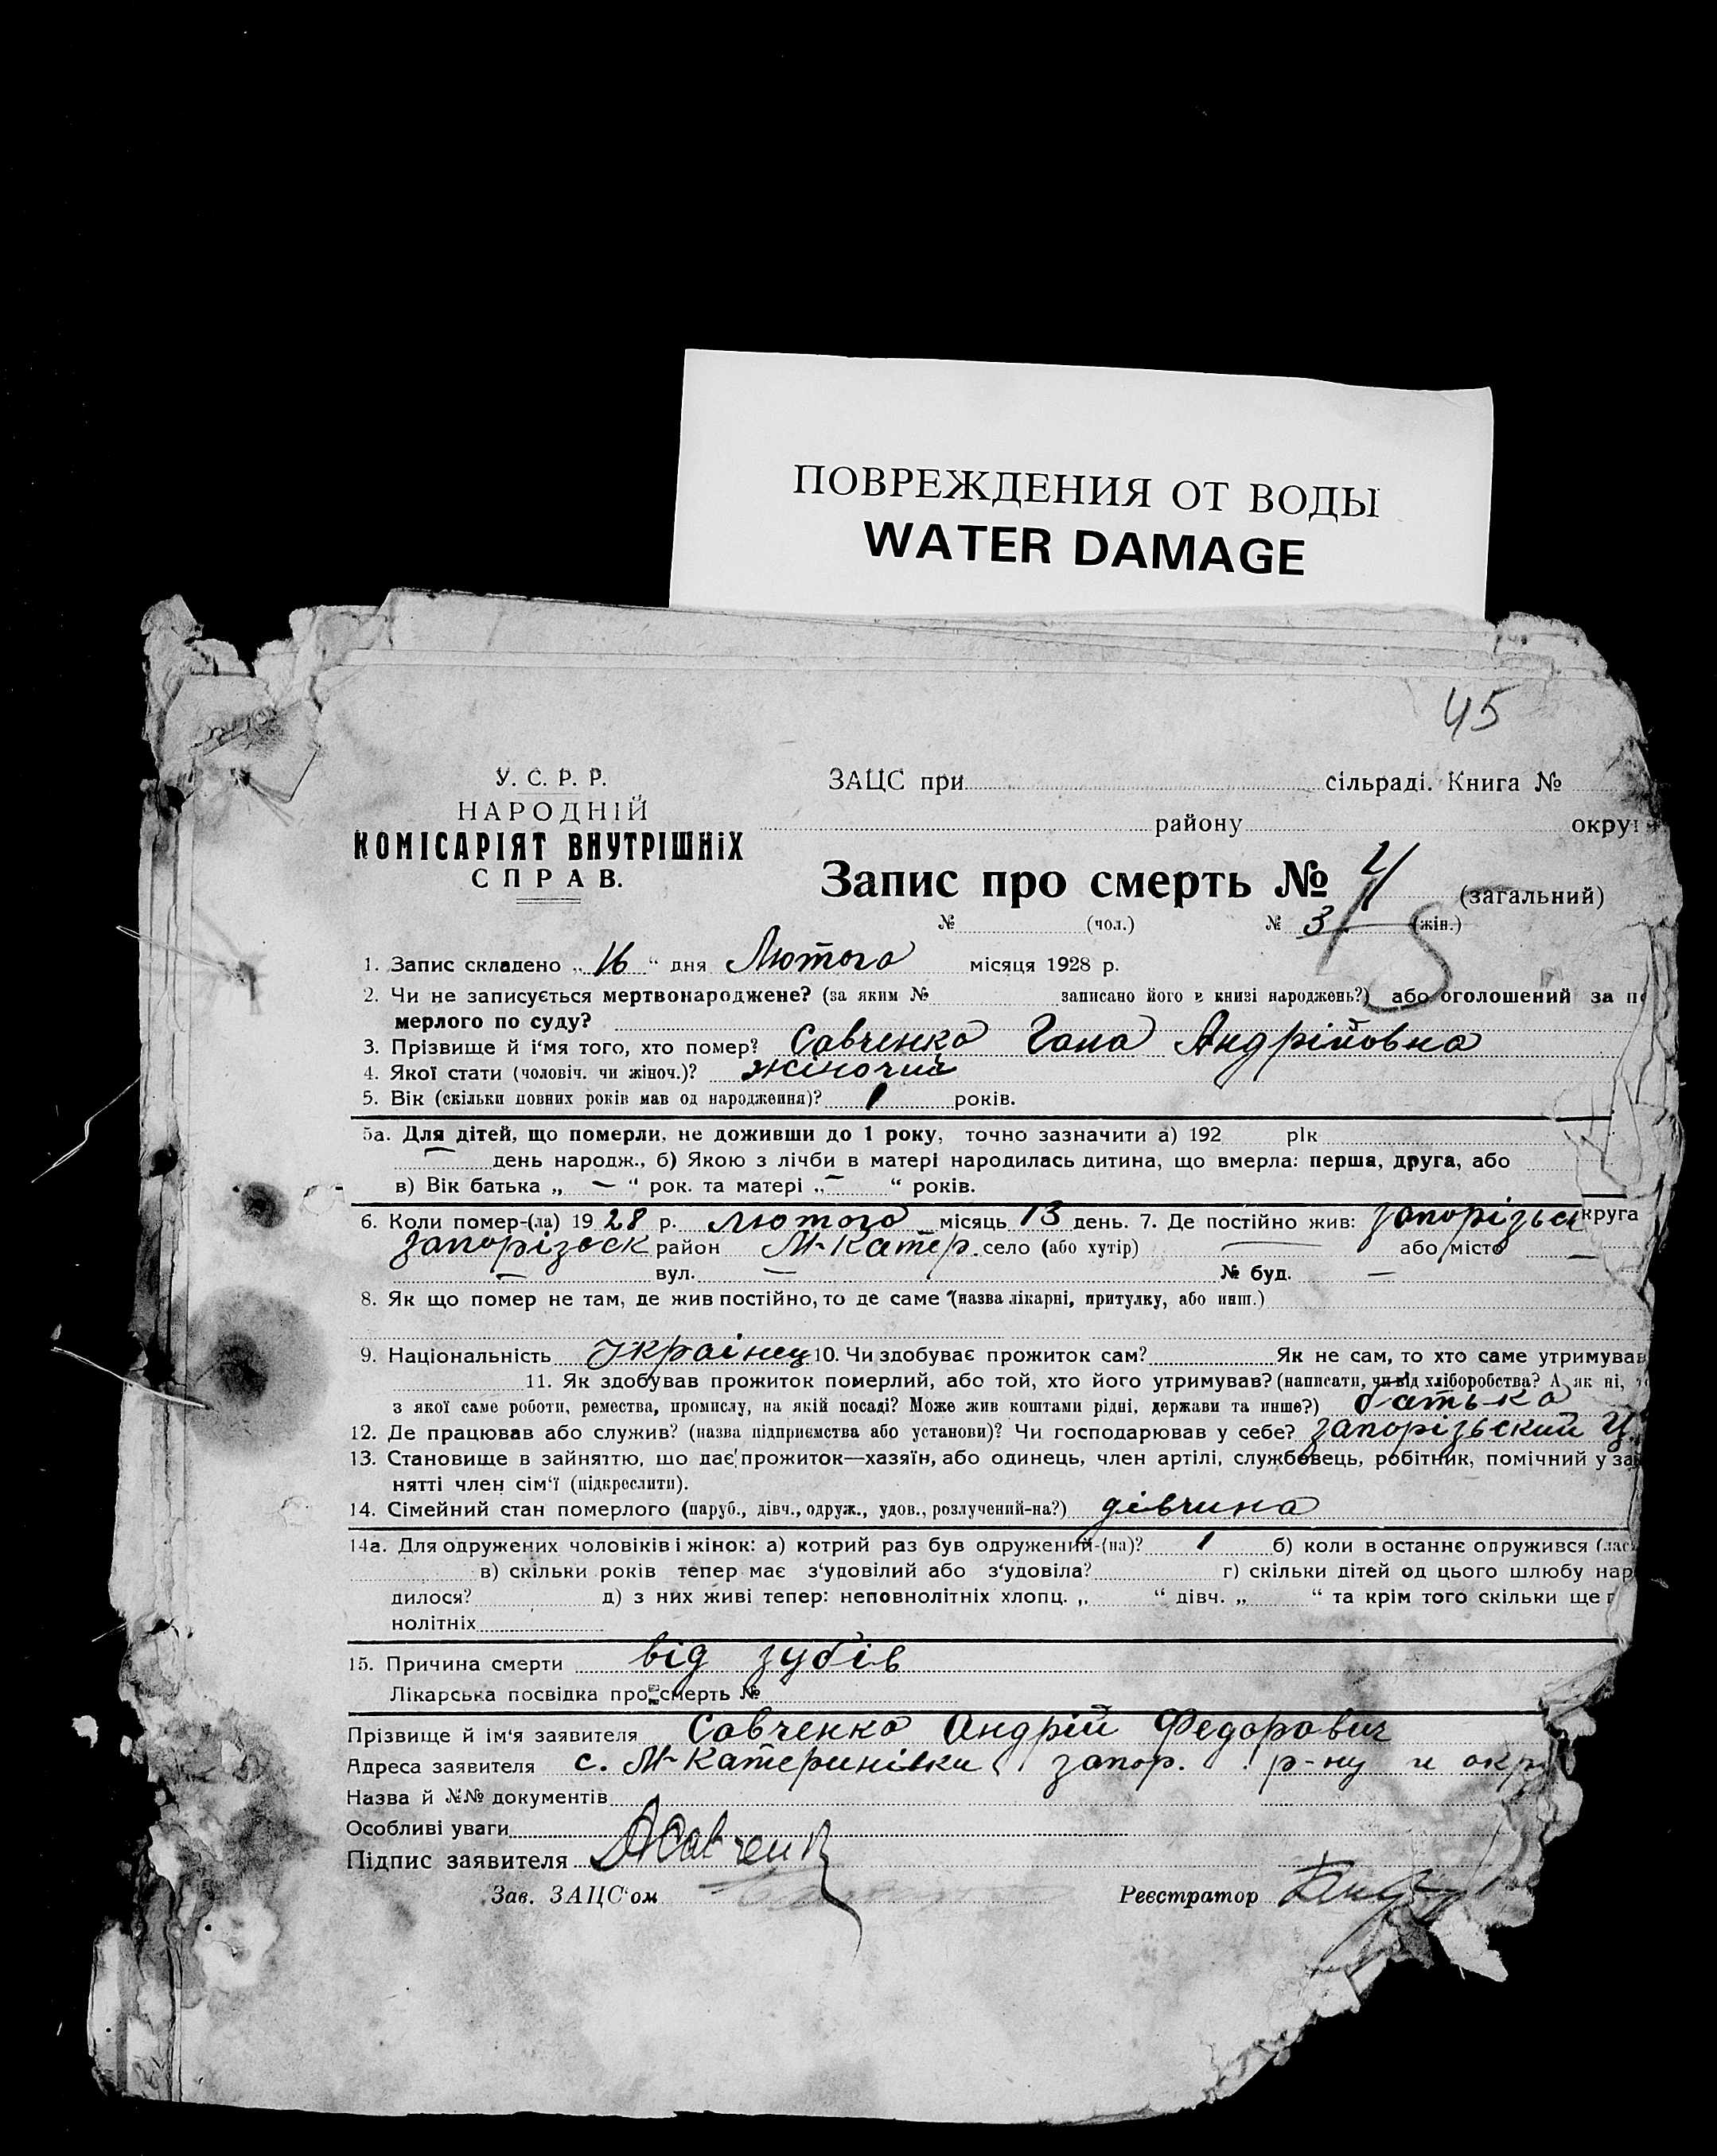 ПОВРЕЖДЕНИЯ ОТ ВОДЫ
WATER DAMAGE
45
У. С. Р. Р.
НАРОДНІЙ
КОМІСАРІЯТ ВНУТРІШНІХ
СПРАВ.
ЗАЦС при сільраді. Книга №
району округ
Запис про смерть № 4 (загальний)
№ (чол.) № 3 (жін.)
5
1. Запис складено „16“ дня Лютого місяця 1928 р.
2. Чи не записується мертвонароджене? (за яким № записано його в книзі народжень?) або оголошений за по
мерлого по суду?
3. Прізвище й і'мя того, хто помер? Савченко Гана Андрійовна
4. Якої стати (чоловіч. чи жіноч.)? жіночий
5. Вік (скільки повних років мав од народження)? 1 років.
5а. Для дітей, що померли, не доживши до 1 року, точно зазначити а) 192 рік
— день народж., б) Якою з лічби в матері народилась дитина, що вмерла: перша, друга, або
в) Вік батька „ — “ рок. та матері „ — “ років.
6. Коли помер-(ла) 1928 р. лютого місяць 13 день. 7. Де постійно жив: Запорізьк округа
Запорізьск район М-Катер. село (або хутір) — або місто —
— вул. — № буд. —
8. Як що помер не там, де жив постійно, то де саме (назва лікарні, притулку, або инш.)
9. Національність Украінец 10. Чи здобуває прожиток сам? Як не сам, то хто саме утримував
11. Як здобував прожиток померлий, або той, хто його утримував? (написати, чи від хліборобства? А як ні, то
з якої саме роботи, ремества, промислу, на якій посаді? Може жив коштами рідні, держави та инше?) батька
12. Де працював або служив? (назва підприємства або установи)? Чи господарював у себе? Запорізьский Ц.
13. Становище в зайняттю, що дає прожиток—хазяїн, або одинець, член артілі, службовець, робітник, помічний у зай
нятті член сім'ї (підкреслити).
14. Сімейний стан померлого (паруб., дівч., одруж., удов., розлучений-на?) дівчина
14а. Для одружених чоловіків і жінок: а) котрий раз був одружений-(на)? 1 б) коли в останнє одружився (лас
в) скільки років тепер має з'удовілий або з'удовіла? г) скільки дітей од цього шлюбу наро
дилося? д) з них живі тепер: неповнолітніх хлопц. „ “ дівч. „ “ та крім того скільки ще п
нолітніх
15. Причина смерти від зубів
Лікарська посвідка про смерть №
Прізвище й ім'я заявителя Савченко Андрій Федорович
Адреса заявителя с. М-Катеринівки запор. р-ну и окр
Назва й №№ документів
Особливі уваги
Підпис заявителя А Савченк
Зав. ЗАЦС'ом Реєстратор